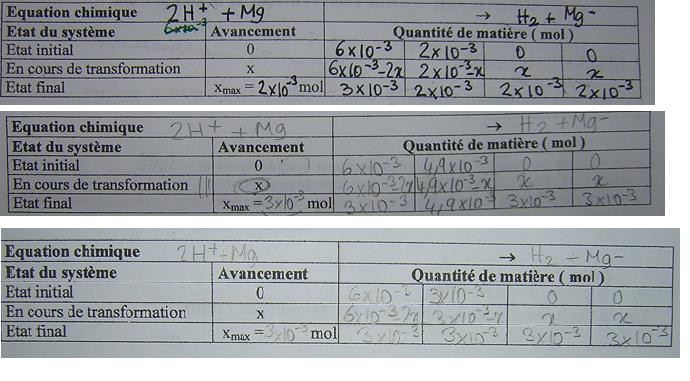 Equation chimique 2H⁺ + Mg → H₂ + Mg⁻
Etat du système Avancement Quantité de matière ( mol )
Etat initial 0 6x10⁻³ 2x10⁻³ 0 0
En cours de transformation x 6x10⁻³-2x 2x10⁻³-x x x
Etat final xmax = 2x10⁻³ mol 3x10⁻³ 2x10⁻³ 2x10⁻³ 2x10⁻³
Equation chimique 2H⁺ + Mg → H₂ + Mg⁻
Etat du système Avancement Quantité de matière ( mol )
Etat initial 0 6x10⁻³ 4,9x10⁻³ 0 0
En cours de transformation x 6x10⁻³-2x 4,9x10⁻³-x x x
Etat final xmax = 3x10⁻³ mol 3x10⁻³ 4,9x10⁻³ 3x10⁻³ 3x10⁻³
Equation chimique 2H⁺+Mg → H₂ + Mg⁻
Etat du système Avancement Quantité de matière ( mol )
Etat initial 0 6x10⁻³ 3x10⁻³ 0 0
En cours de transformation x 6x10⁻³-2x 3x10⁻³-x x x
Etat final xmax = 3x10⁻³ mol 3x10⁻³ 3x10⁻³ 3x10⁻³ 3x10⁻³